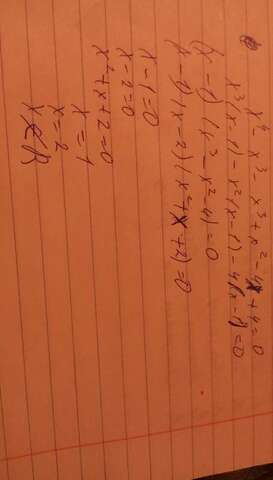 x⁴ x³ - x³ + x² - 4x + 4 = 0
x³(x-1) - x²(x-1) - 4(x-1) = 0
(x-1)(x³ - x² - 4) = 0
(x-1)(x-2)(x² + x + 2) = 0
x - 1 = 0
x - 2 = 0
x² + x + 2 = 0
x = 1
x = 2
x ∉ R